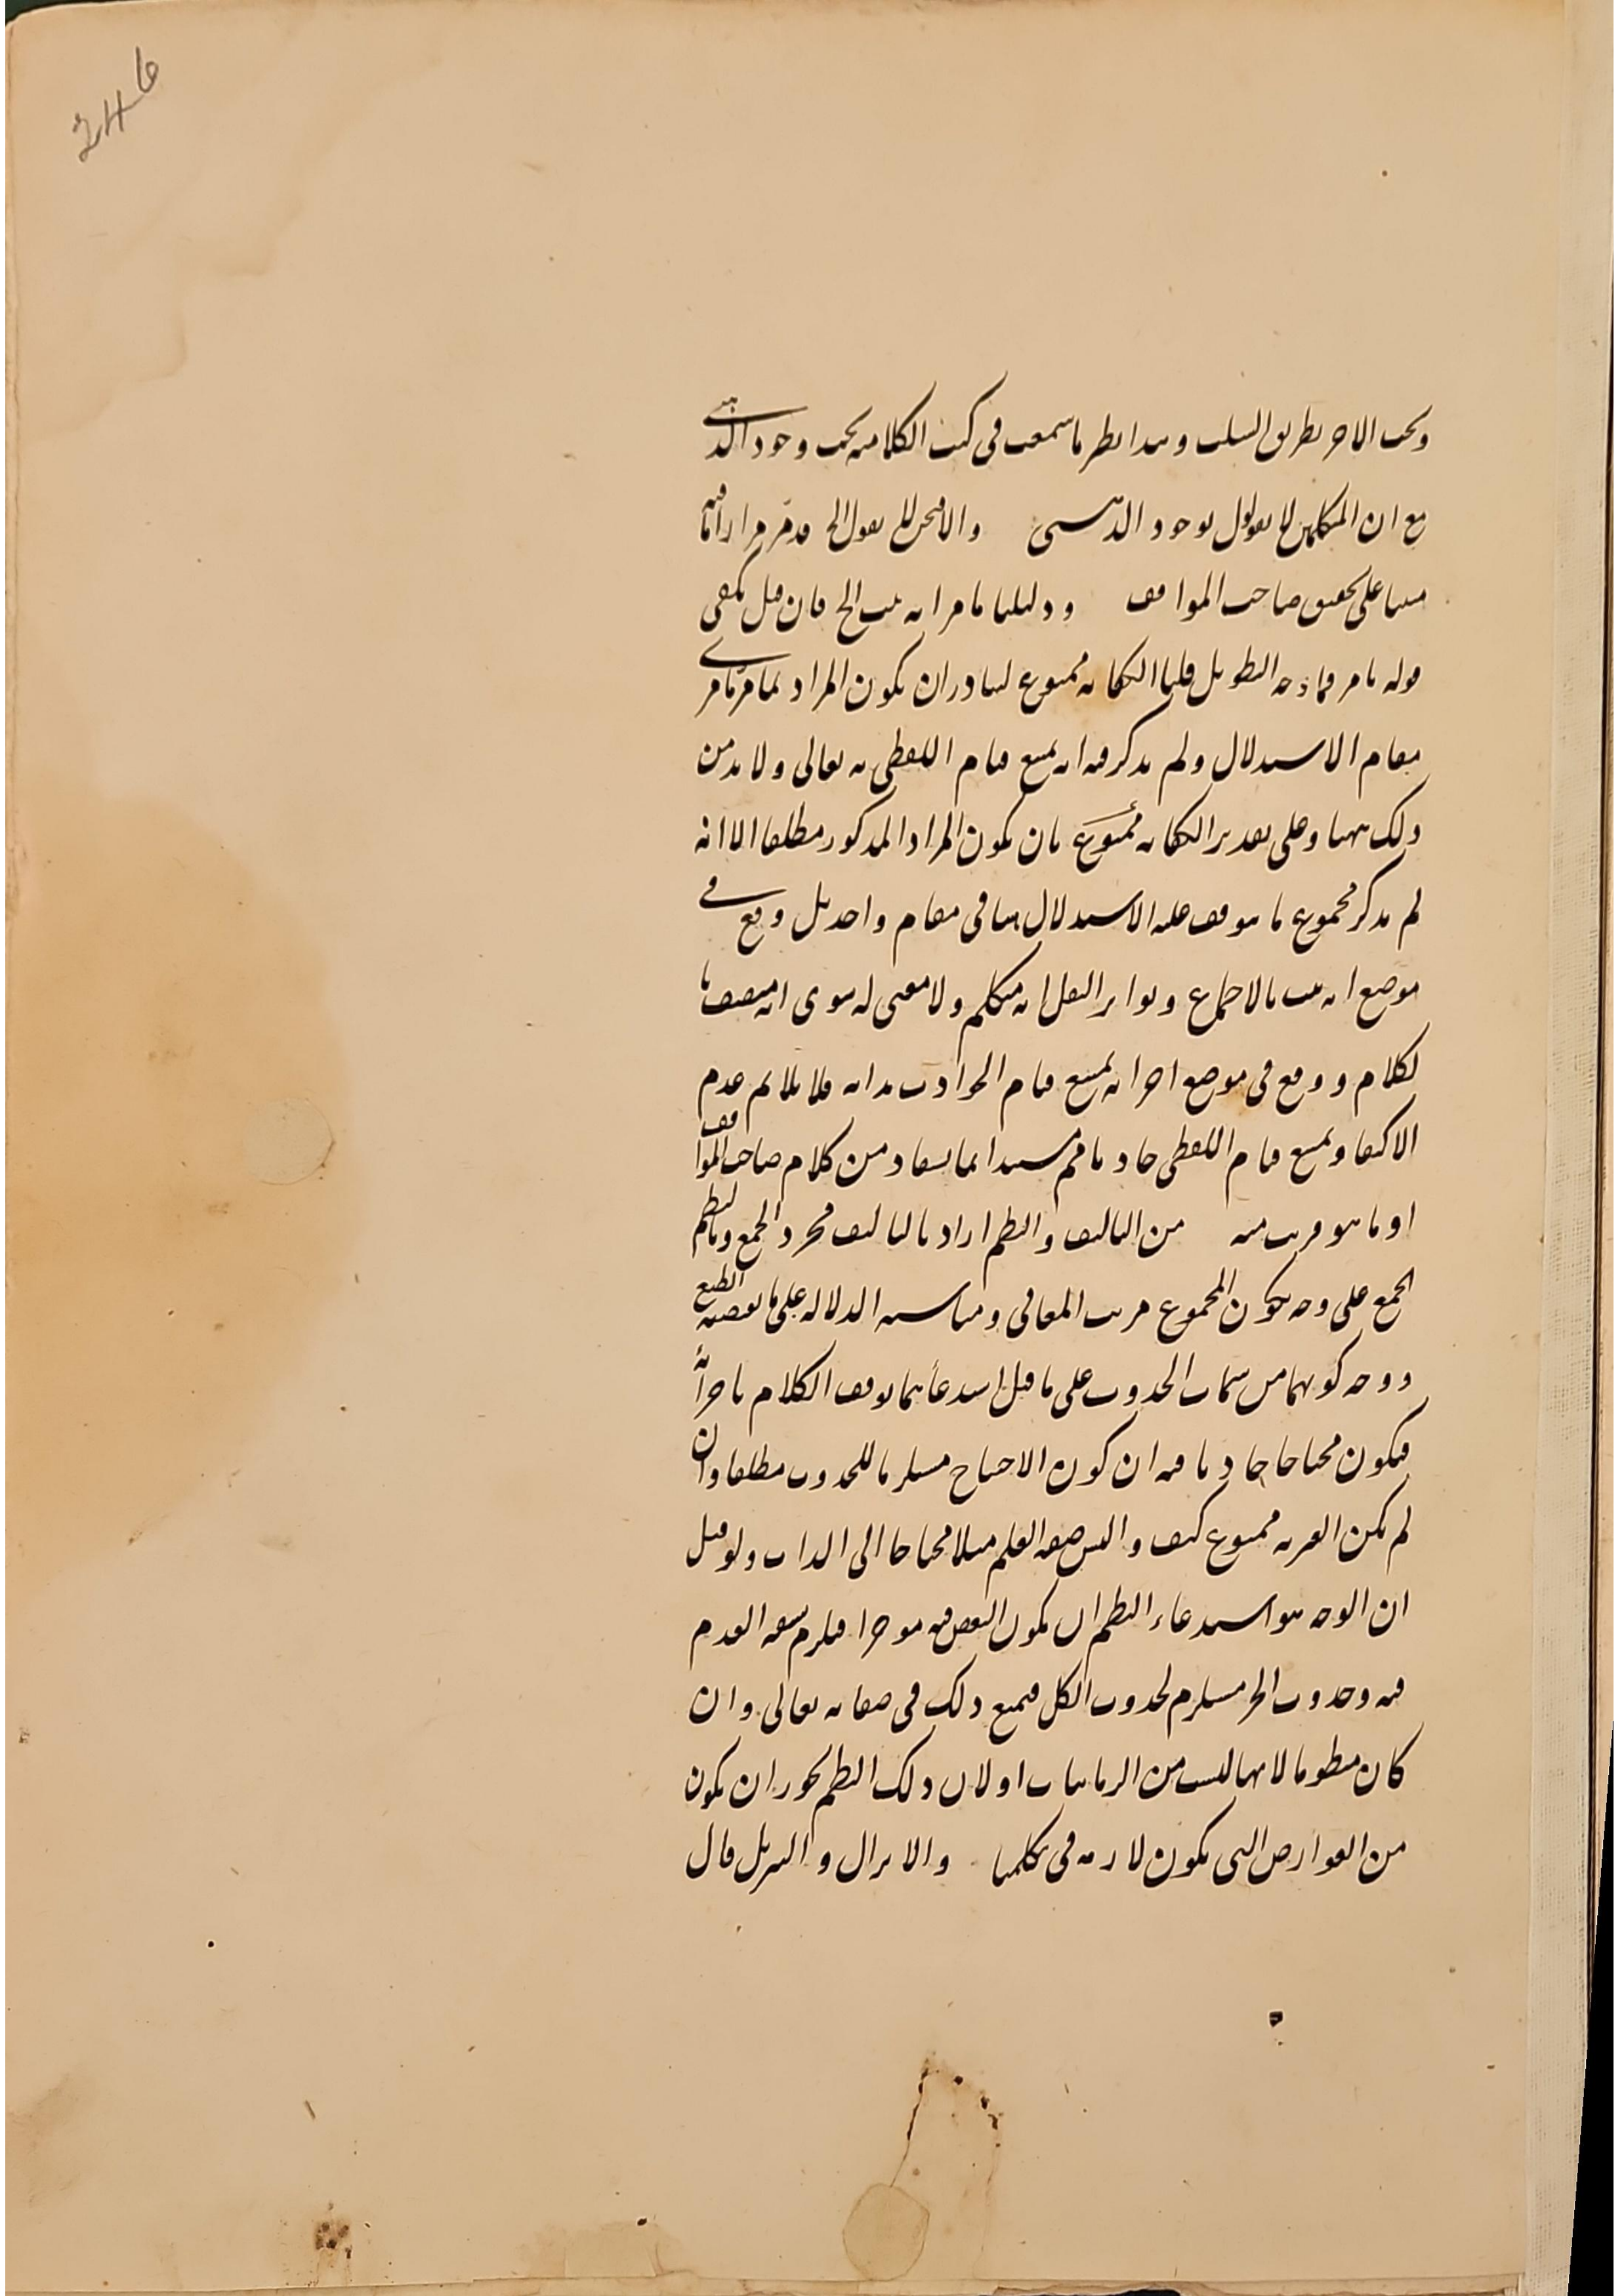 246
وبحث الاخر بطريق السلب وهذا نظير ما سمعت في كتب الكلامية بحث وجود الذهني
مع ان المتكلمين لا يقولون بوجود الذهني والا فنحن لا نقول الخ قد مر مرارا ما فيه
مبنيا على تحقيق صاحب المواقف ودليلنا ما مر انه ثبت الخ فان قيل يكفي
قوله ما مر فما وجه التطويل قلنا الكفاية ممنوع لتبادر ان يكون المراد بما مر ما مر في
مقام الاستدلال ولم يذكر فيه انه يمتنع قيام اللفظي به تعالى ولا بد من
ذلك ههنا وعلى تقدير الكفاية ممنوع بان يكون المراد المذكور مطلقا الا انه
لم يذكر مجموع ما يتوقف عليه الاستدلال هنا في مقام واحد بل وقع في
موضع انه ثبت بالاجماع وتواتر النقل انه متكلم ولا معنى له سوى انه متصف با
لكلام ووقع في موضع اخر انه يمتنع قيام الحوادث بذاته فلا يلايم عدم
الاكتفا ويمتنع قيام اللفظي حادثا فهم مستندا بما يستفاد من كلام صاحب المواقف
او ما هو قريب منه من التاليف والنظم اراد بالتاليف مجرد الجمع وبالنظم
الجمع على وجه يكون المجموع مرتب المعاني ومتناسبة الدلالة على ما يقتضيه الطبع
ووجه كونهما من سمات الحدوث على ما قيل استدعاؤهما توقف الكلام باجزائه
فيكون محتاجا حادثا فيه ان كون الاحتياج مستلزما للحدوث مطلقا وان
لم يكن الغيرية ممنوع كيف واليس صفة العلم مثلا محتاجا الى الذات ولو قيل
ان الوجه هو استدعاء النظم ان يكون البعض فيه موخرا فيلزم سبقه العدم
فيه وحدوث الجزء مستلزم لحدوث الكل فيمتنع ذلك في صفاته تعالى وان
كان منظوما لانها ليست من الزمانيات او لان ذلك النظم يجوز ان يكون
من العوارض التي يكون لازمة في تكلمنا والانزال والتنزيل قال